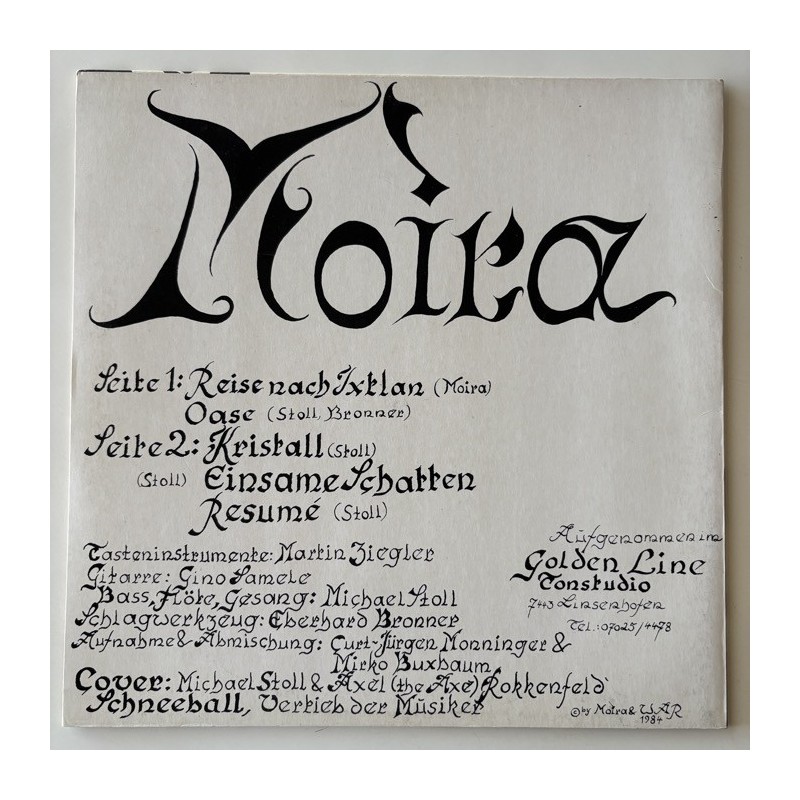 Moira
Seite 1: Reise nach Ixtlan (Moira)
Oase (Stoll, Bronner)
Seite 2: Kristall (Stoll)
(Stoll) Einsame Schatten
Resumé (Stoll)
Tasteninstrumente: Martin Ziegler
Gitarre: Gino Samele
Bass, Flöte, Gesang: Michael Stoll
Schlagwerkzeug: Eberhard Bronner
Aufnahme & Abmischung: Curt-Jürgen Monninger &
Mirko Buxbaum
Cover: Michael Stoll & Axel (the Axe) Rokkenfeld
Schneeball, Vertrieb der Musiker
Aufgenommen im
Golden Line
Tonstudio
7443 Linsenhofen
Tel.: 07025/4478
© by Moira & WAR
1984